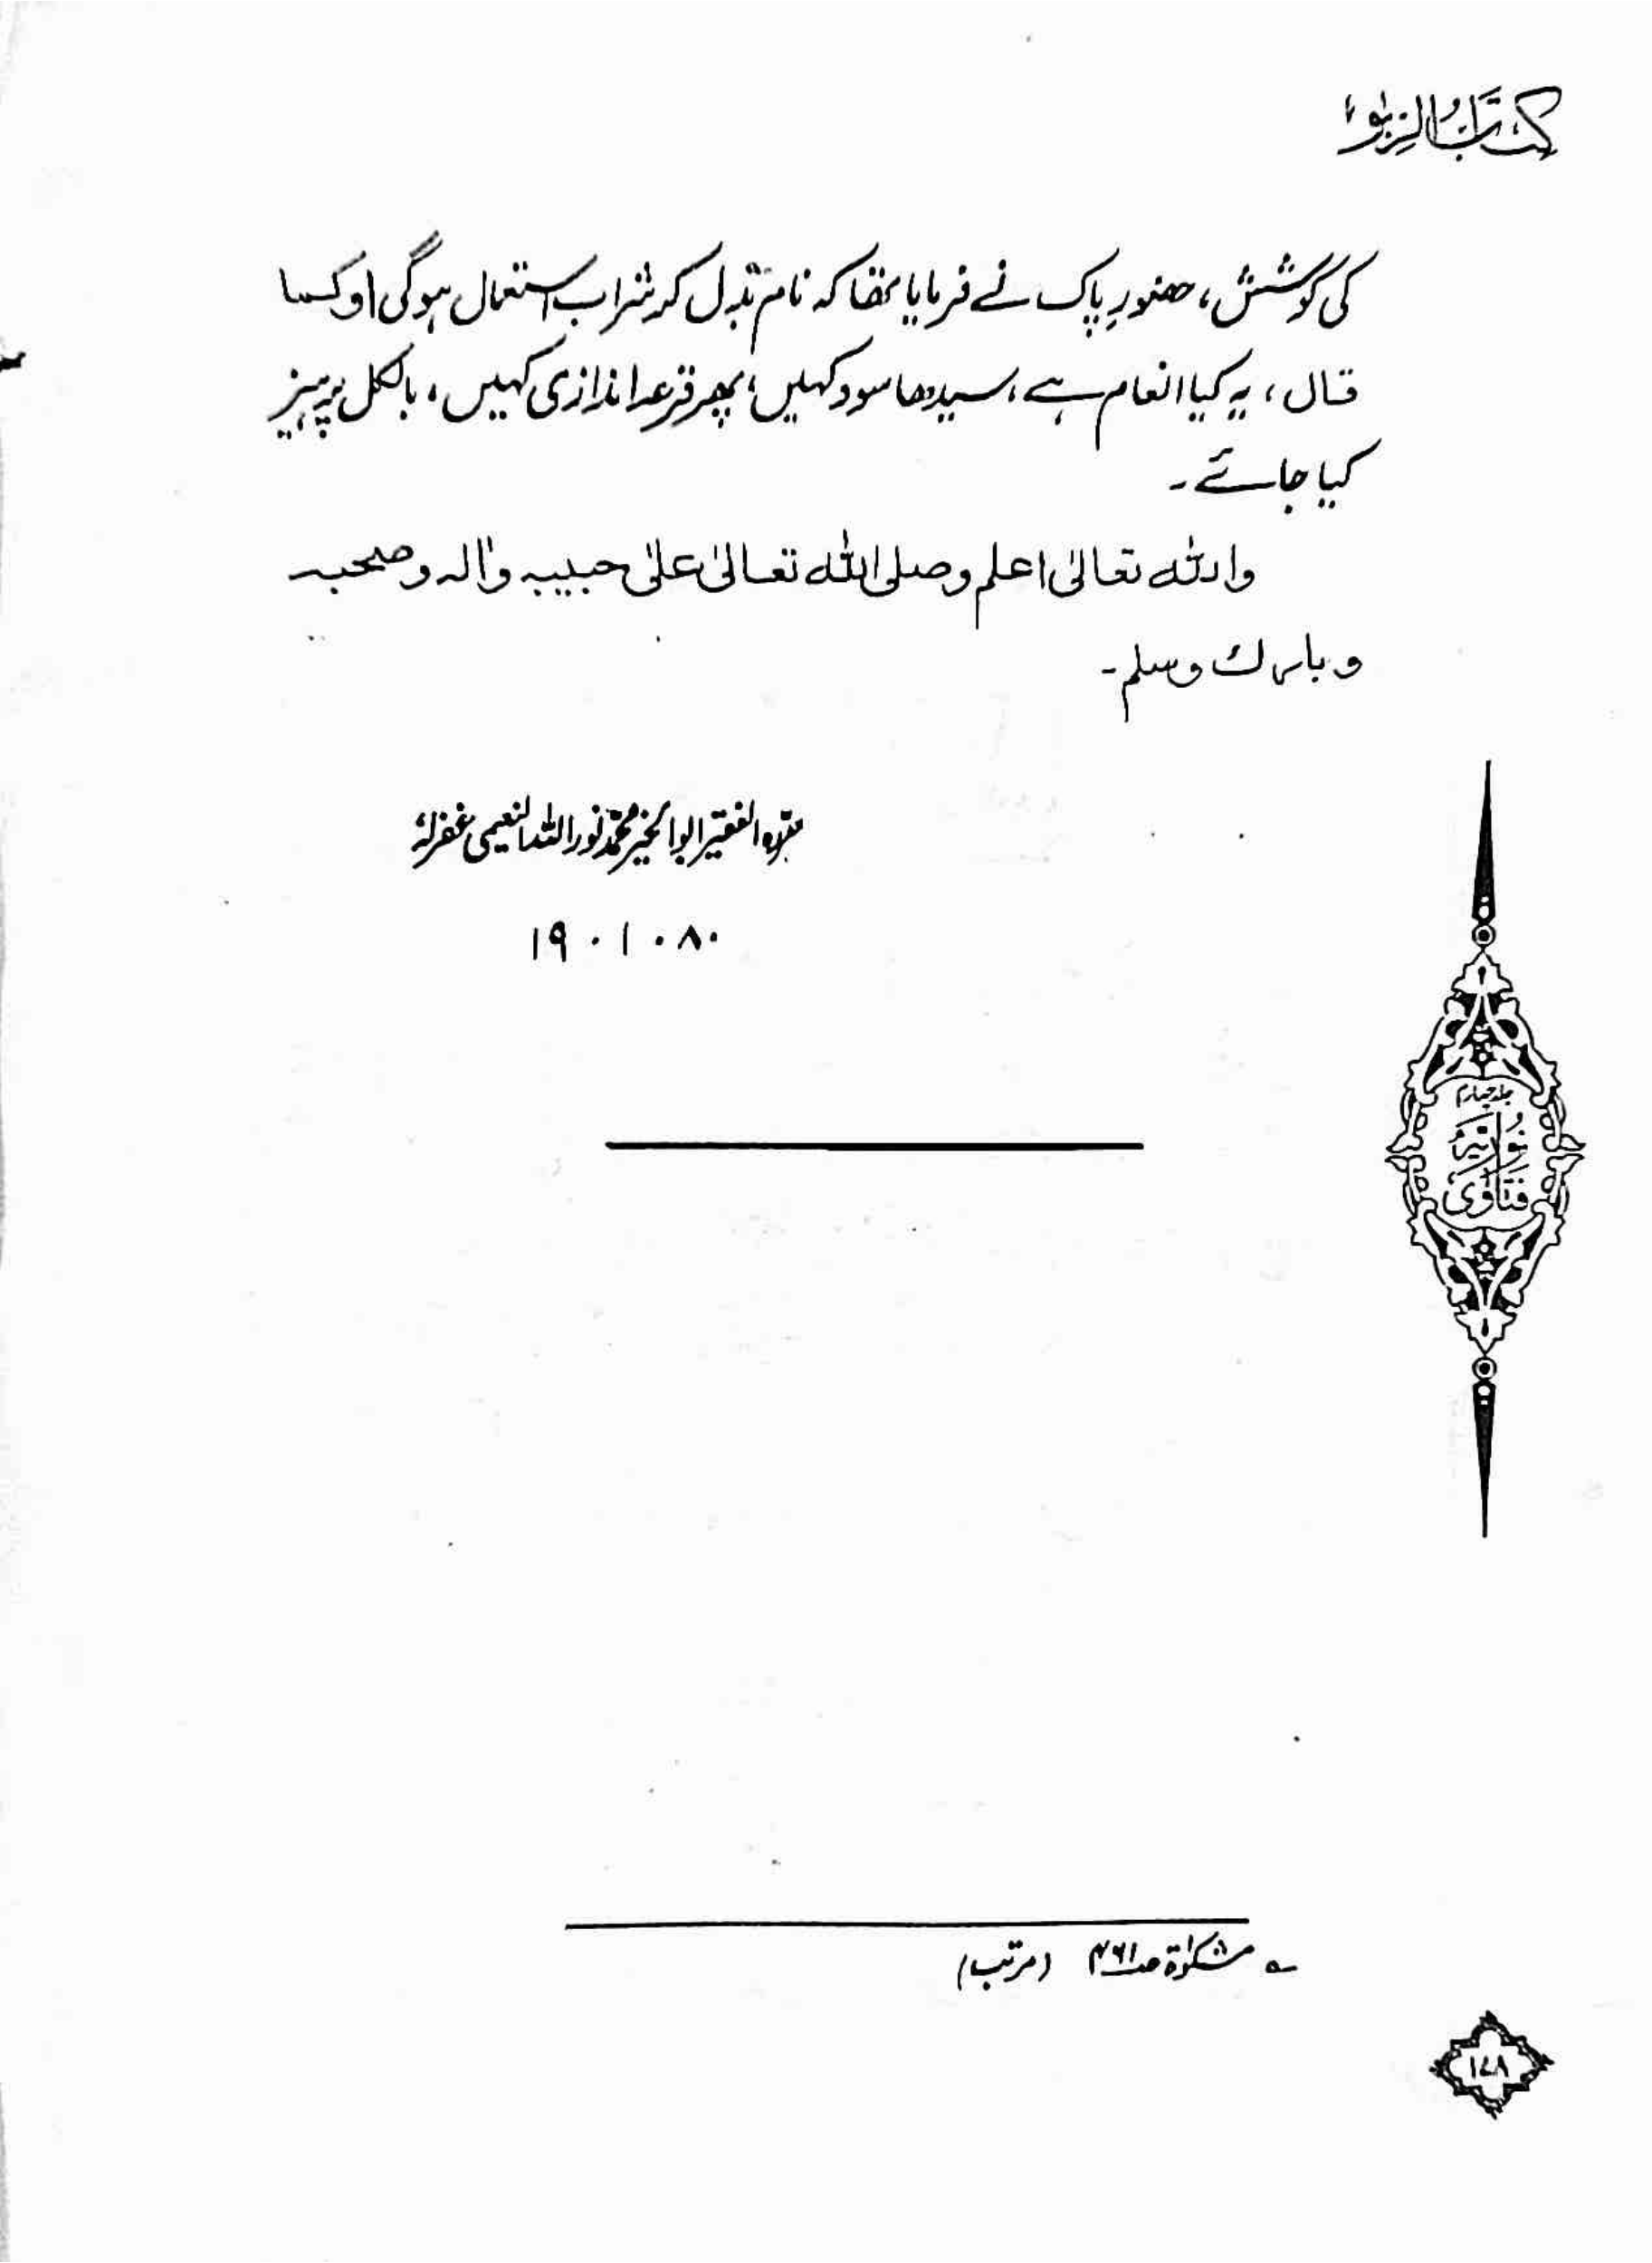 کتاب الربٰوٰء
کی کوشش، حضورِ پاک نے فرمایا تھا کہ نام تبدل کر شراب استعمال ہوگی اوکما
قال، یہ کیا انعام ہے، سیدھا سود کہیں، پھر قرعہ اندازی کہیں، بالکل پرہیز
کیا جائے۔
واللہ تعالیٰ اعلم وصلی اللہ تعالیٰ علیٰ حبیبہ واٰلہ وصحبہ
وبارک وسلم۔
الفقیر ابوالخیر محمد نور اللہ النعیمی غفرلہٗ
۱۹۰۱۰۸۰
جلد چہارم
فتاویٰ نوریہ
؎ مشکوٰۃ صـ۴۶۱ (مرتب)
۱۴۸